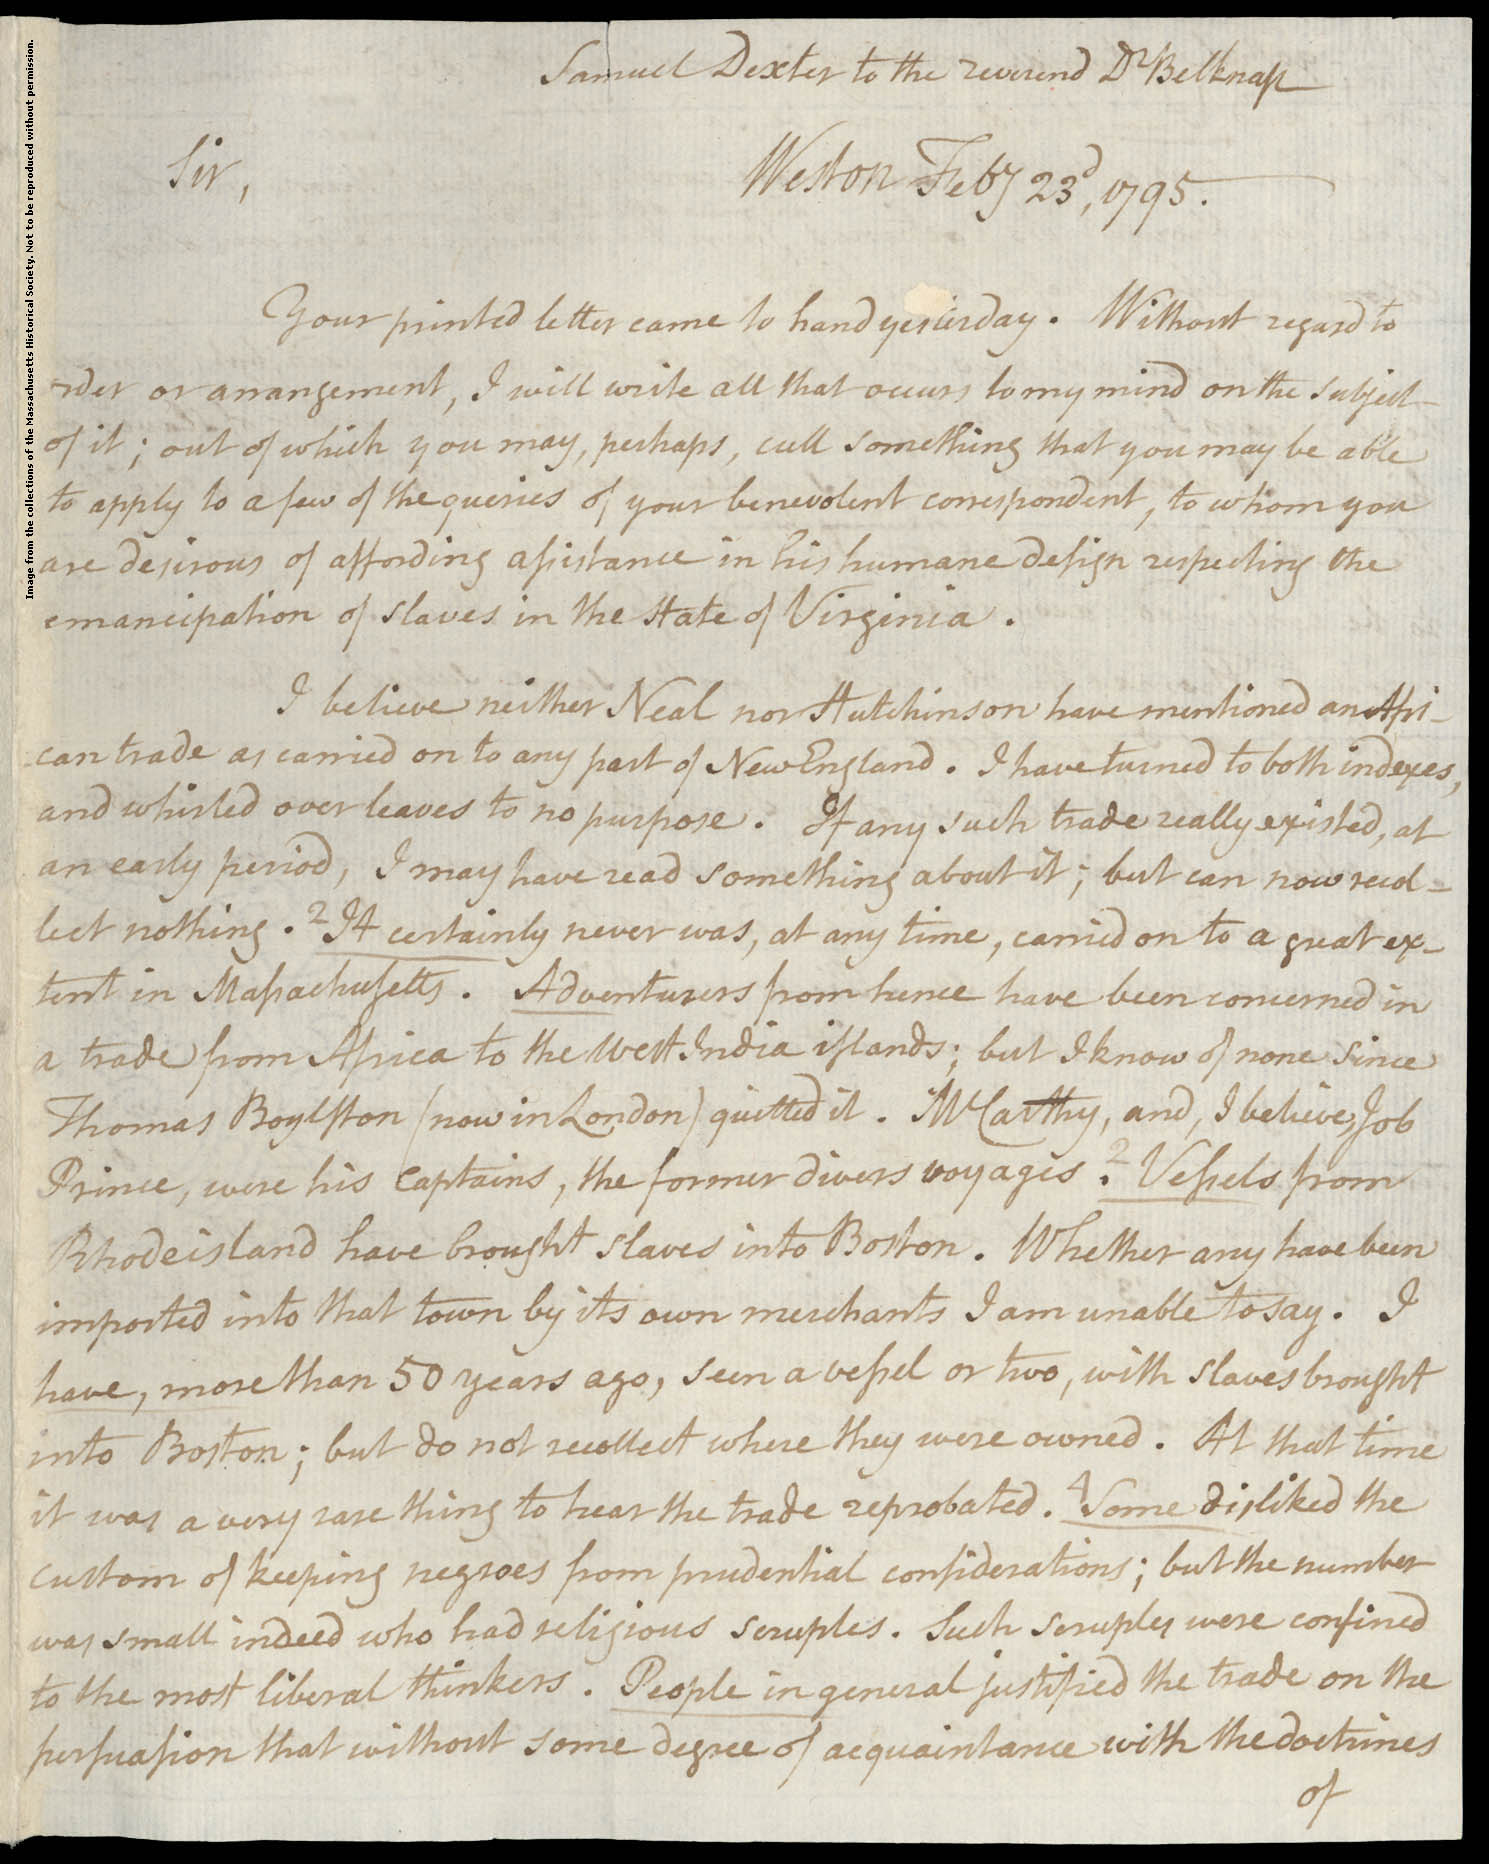 Samuel Dexter to the reverend Dr Belknap
Sir,
Weston Feby 23d, 1795.
Your printed letter came to hand yesterday. Without regard to
order or arrangement, I will write all that occurs to my mind on the subject
of it; out of which you may, perhaps, cull something that you may be able
to apply to a few of the queries of your benevolent correspondent, to whom you
are desirous of affording assistance in his humane design respecting the
emancipation of slaves in the State of Virginia.
I believe neither Neal nor Hutchinson have mentioned an Afri-
can trade as carried on to any part of New England. I have turned to both indexes,
and whirled over leaves to no purpose. If any such trade really existed, at
an early period, I may have read something about it; but can now recol-
lect nothing. 2 It certainly never was, at any time, carried on to a great ex-
tent in Massachusetts. Adventurers from hence have been concerned in
a trade from Africa to the West India islands; but I know of none since
Thomas Boylston (now in London) quitted it. McCarthy, and, I believe, Job
Prince, were his Captains, the former divers voyages. 2 Vessels from
Rhodeisland have brought slaves into Boston. Whether any have been
imported into that town by its own merchants I am unable to say. I
have, more than 50 years ago, seen a vessel or two, with slaves brought
into Boston; but do not recollect where they were owned. At that time
it was a very rare thing to hear the trade reprobated. 4 Some disliked the
custom of keeping negroes from prudential considerations; but the number
was small indeed who had religious scruples. Such scruples were confined
to the most liberal thinkers. People in general justified the trade on the
persuasion that without some degree of acquaintance with the doctrines
of
Image from the collections of the Massachusetts Historical Society. Not to be reproduced without permission.